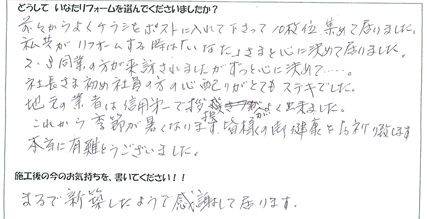 どうして いなたリフォームを選んでくださいましたか？
前々からよくチラシをポストに入れて下さって10枚位集めて居りました。
私共がリフォームする時は「いなた」さまと心に決めて居りました。
2・3同業の方が来訪されましたがずっと心に決めて……。
社長さま初め社員の方の心配りがとてもステキでした。
地元の業者は信用第一で挨拶がよく出来ました。
これから季節が暑くなります、皆様の御健康をお祈り致します
本当に有難とうございました。
施工後の今のお気持ちを、書いてください！！
まるで新築したようで感謝して居ります。